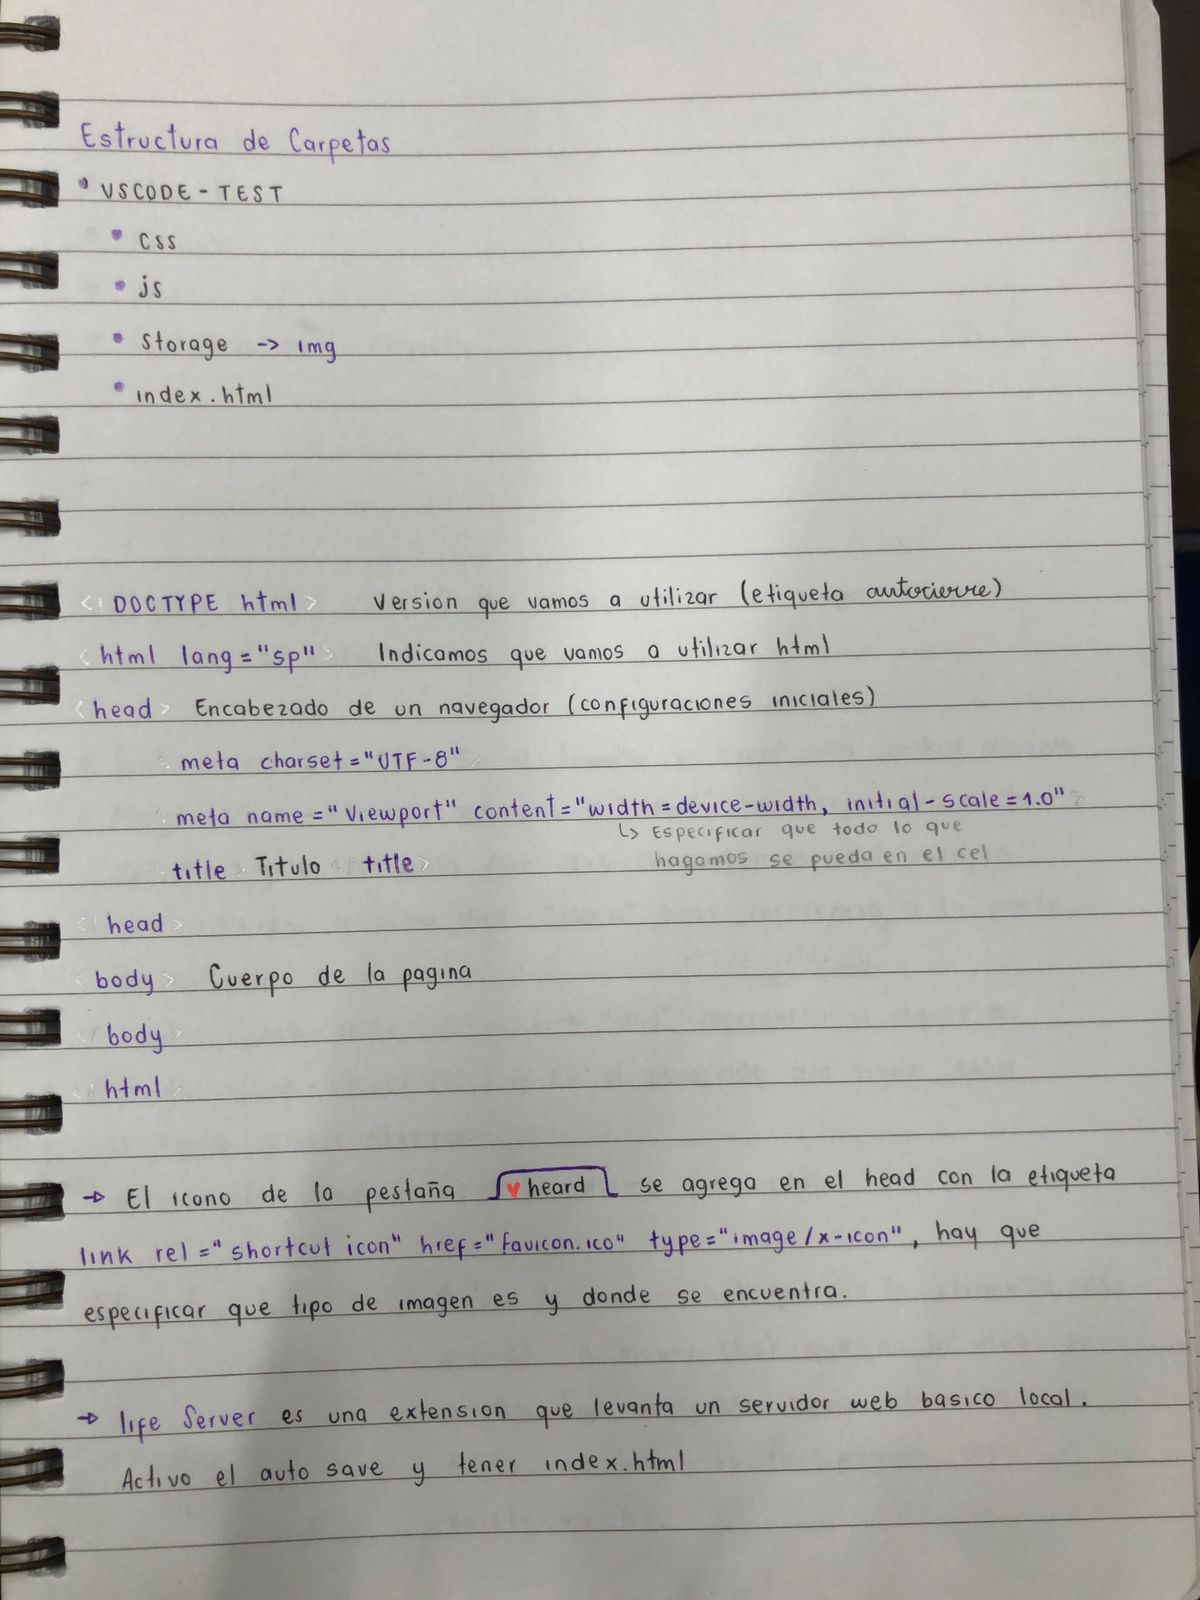 Estructura de Carpetas
• VSCODE - TEST
• css
• js
• storage -> img
• index.html
<! DOCTYPE html> Version que vamos a utilizar (etiqueta autocierre)
<html lang="sp"> Indicamos que vamos a utilizar html
<head> Encabezado de un navegador (configuraciones iniciales)
<meta charset="UTF-8">
<meta name="Viewport" content="width=device-width, initial-scale=1.0">
↳ Especificar que todo lo que
hagamos se pueda en el cel
<title> Titulo </title>
</head>
<body> Cuerpo de la pagina
</body>
</html>
→ El icono de la pestaña ♥ heard se agrega en el head con la etiqueta
link rel="shortcut icon" href="favicon.ico" type="image/x-icon", hay que
especificar que tipo de imagen es y donde se encuentra.
→ life Server es una extension que levanta un servidor web basico local.
Activo el auto save y tener index.html